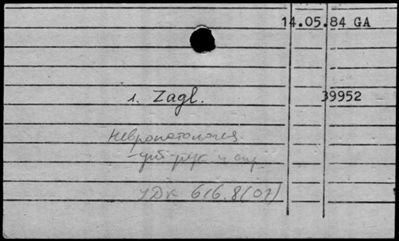 14.05.84 GA
1. Zagl. 39952
Невропатология
УДК 616.8(07)